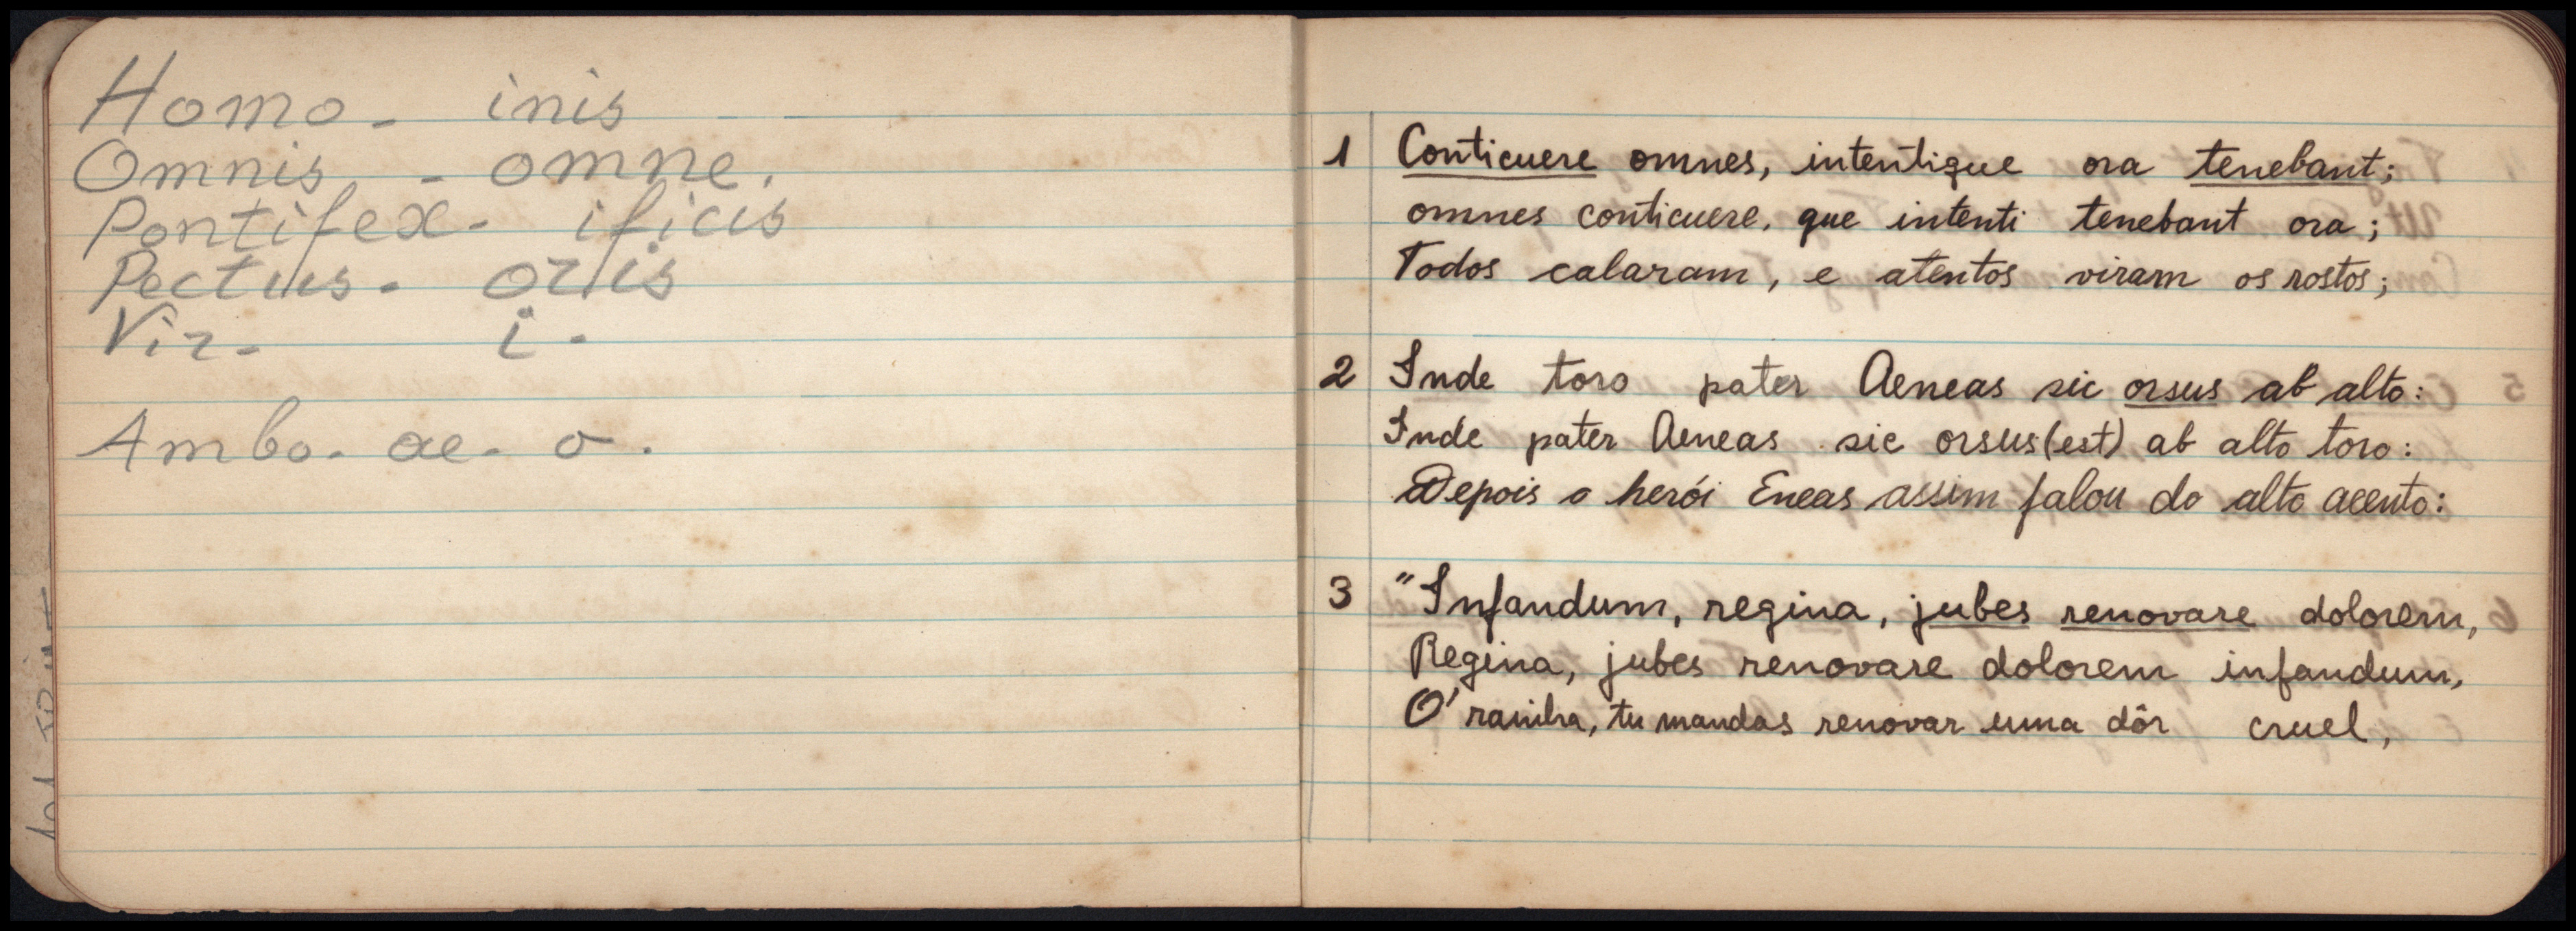 Homo - inis
Omnis - omne.
Pontifex - ificis
Pectus - oris
Vir - i -
Ambo - ae - o.
1 Conticuere omnes, intentique ora tenebant;
omnes conticuere, que intenti tenebant ora;
Todos calaram, e atentos viram os rostos;
2 Inde toro pater Aeneas sic orsus ab alto:
Inde pater Aeneas sic orsus (est) ab alto toro:
Depois o herói Eneas assim falou do alto acento:
3 "Infandum, regina, jubes renovare dolorem,
Regina, jubes renovare dolorem infandum,
O' rainha, tu mandas renovar uma dôr cruel,